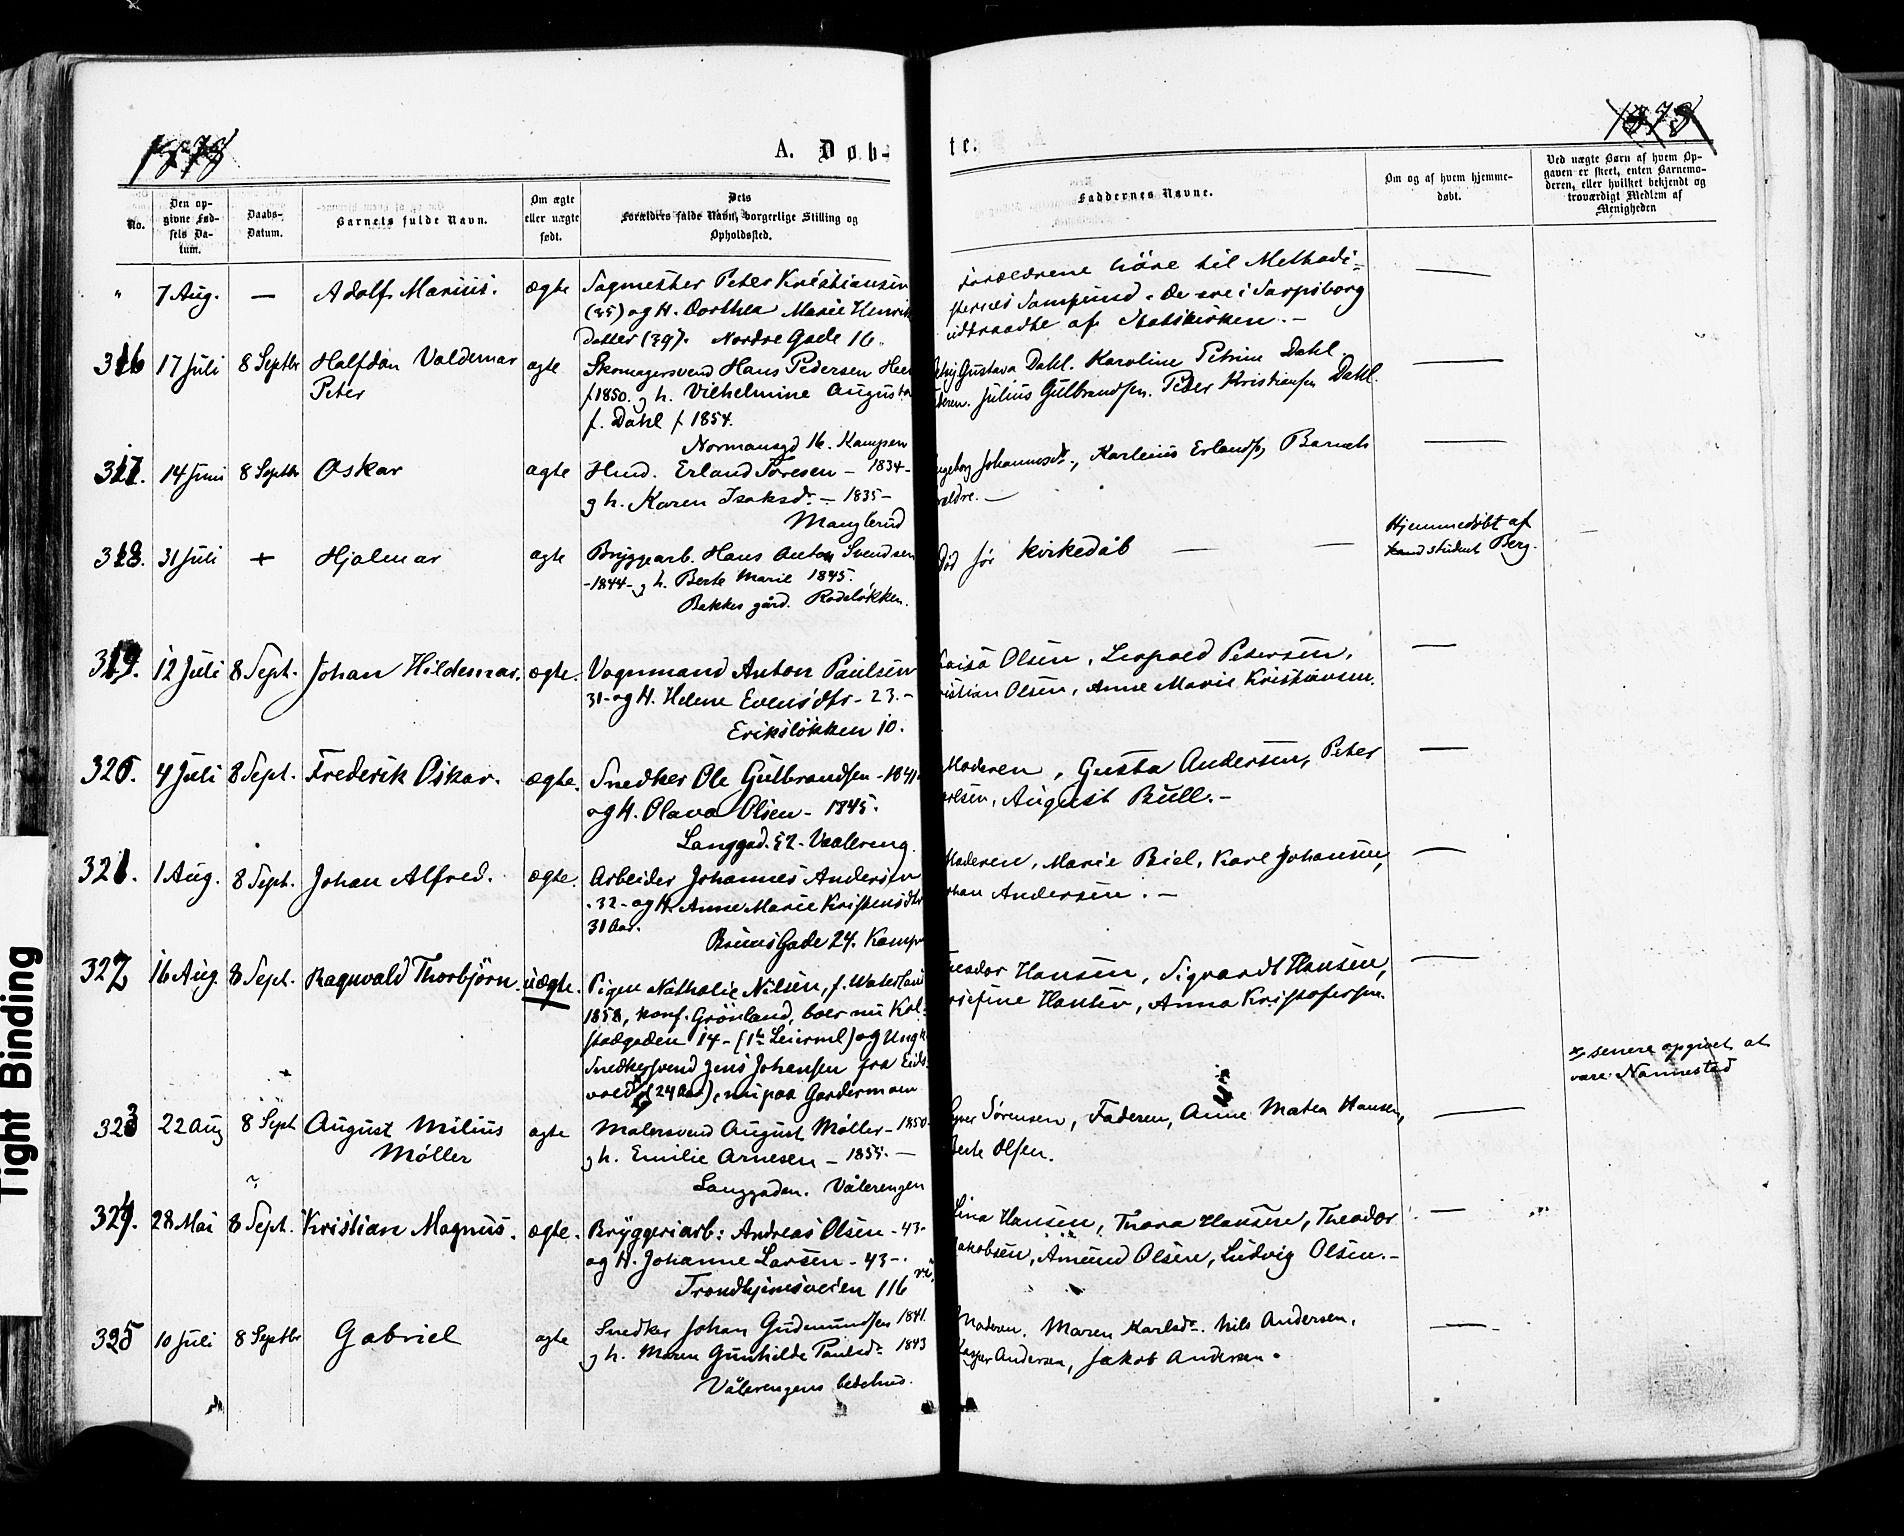 1878
A. Døb-
te.
1878
No.
Den op-
givne Fød-
sels Da-
tum.
Daabs-
Datum.
Barnets fulde Navn.
Om ægte
eller uægte
født.
Dets
Forældres fulde Navn, borgerlige Stilling og
Opholdssted.
Faddernes Navne.
Om og af hvem hjemme-
døbt.
Ved uægte Børn af hvem Op-
gaven er skeet, enten Barnemo-
deren, eller hvilket bekjendt og
troværdigt Medlem af
Menigheden
" 7 Aug. — Adolf Marius. ægte Sagmester Peter Kristiansen
(35) og H. Dorthea Marie Henrik
Datter (39). Nordre Gade 16.
Forældrene höre til Methodi=
sternes Samfund. De ere i Sarpsborg
udtraadte af Statskirken. —
316 17 Juli 8 Septbr Halfdan Valdemar
Peter
ægte Skomagersvend Hans Pedersen
f 1850. og h. Vilhelmine Augusta
f. Dahl f 1854.
Normansgd 16. Kampen
Gustava Dahl. Karoline Petrine Dahl.
Julius Gulbrandsen. Peder Kristiansen Dahl.
317. 14 Juni 8 Septbr Oskar ægte Hmd. Erland Toresen — 1834 —
og h. Karen Isaksdr — 1835 —
Manglerud
Johannesdr., Karlenius Erlands, Barnets
ældre. —
318. 31 Juli + Hjalmar ægte Bryggearb. Hans Anton Svendsen
- 1844 - og h. Berte Marie 1845.
Bakkes gård. Rodeløkken.
Død før kirkedåb — —
Hjemmedøbt af
student Berg.
319. 12 Juli 8 Sept. Johan Hildemar. ægte. Vognmand Anton Paulsen
31 - og H. Helene Evensdtr - 23. -
Eriksløkken 10.
Olsen, Leopold Petersen,
istian Olsen, Anne Marie Kristiansen.
320. 4 Juli 8 Sept. Frederik Oskar. ægte. Snedker Ole Gulbrandsen - 1841
og H. Olava Olsen - 1845.
Langgad. 52 - Vaalereng.
Moderen, Gusta Andersen, Peter
August Bull. —
321. 1 Aug. 8 Sept. Johan Alfred. ægte. Arbeider Johannes Andersen
- 32 - og H. Anne Marie Kristensdtr
31 Aar.
Bruns Gade 24. Kampe
Moderen, Marie Biel, Karl Johansen,
ohan Andersen. —
322 16 Aug. 8 Sept. Ragnvald Thorbjörn. uægte. Pigen Nathalie Nilsen, f. Waterland
1858, konf. Grönland, boer nu Kol-
stadgaden 14 - (1ste Leierml) og Ungk.
Snedkersvend Jens Johansen fra Eids
vold (24 Aar), nu paa Gardermoen
eodor Hansen, Sigvardt Hansen,
osefine Hansen, Anna Kristofersen.
senere opgivet at
være: Nannestad
323 22 Aug 8 Sept August Milius
Møller
ægte Malersvend August Møller - 1850 -
og h. Emilie Arnesen - 1855. —
Langgaden. Vålerengen
Sørensen, Faderen, Anne Matea Hansen,
Berte Olsen.
324. 28 Mai 8 Sept. Kristian Magnus. ægte. Bryggeriarb: Andreas Olsen - 43 -
og H. Johanne Larsen - 43 - .
Trondhjemsveien 116
Lina Hansen, Thora Hansen, Theodor
Jakobsen, Amund Olsen, Ludvig Olsen. -
325 10 Juli 8 Septbr Gabriel ægte Snedker Johan Gudmundsen 1841.
og h. Maren Gunhilde Paulsdr 1843
Vålerengens bedehus.
Moderen. Maren Karlsdr. Nils Andersen,
Kasper Andersen, Jakob Andersen.
Tight Binding